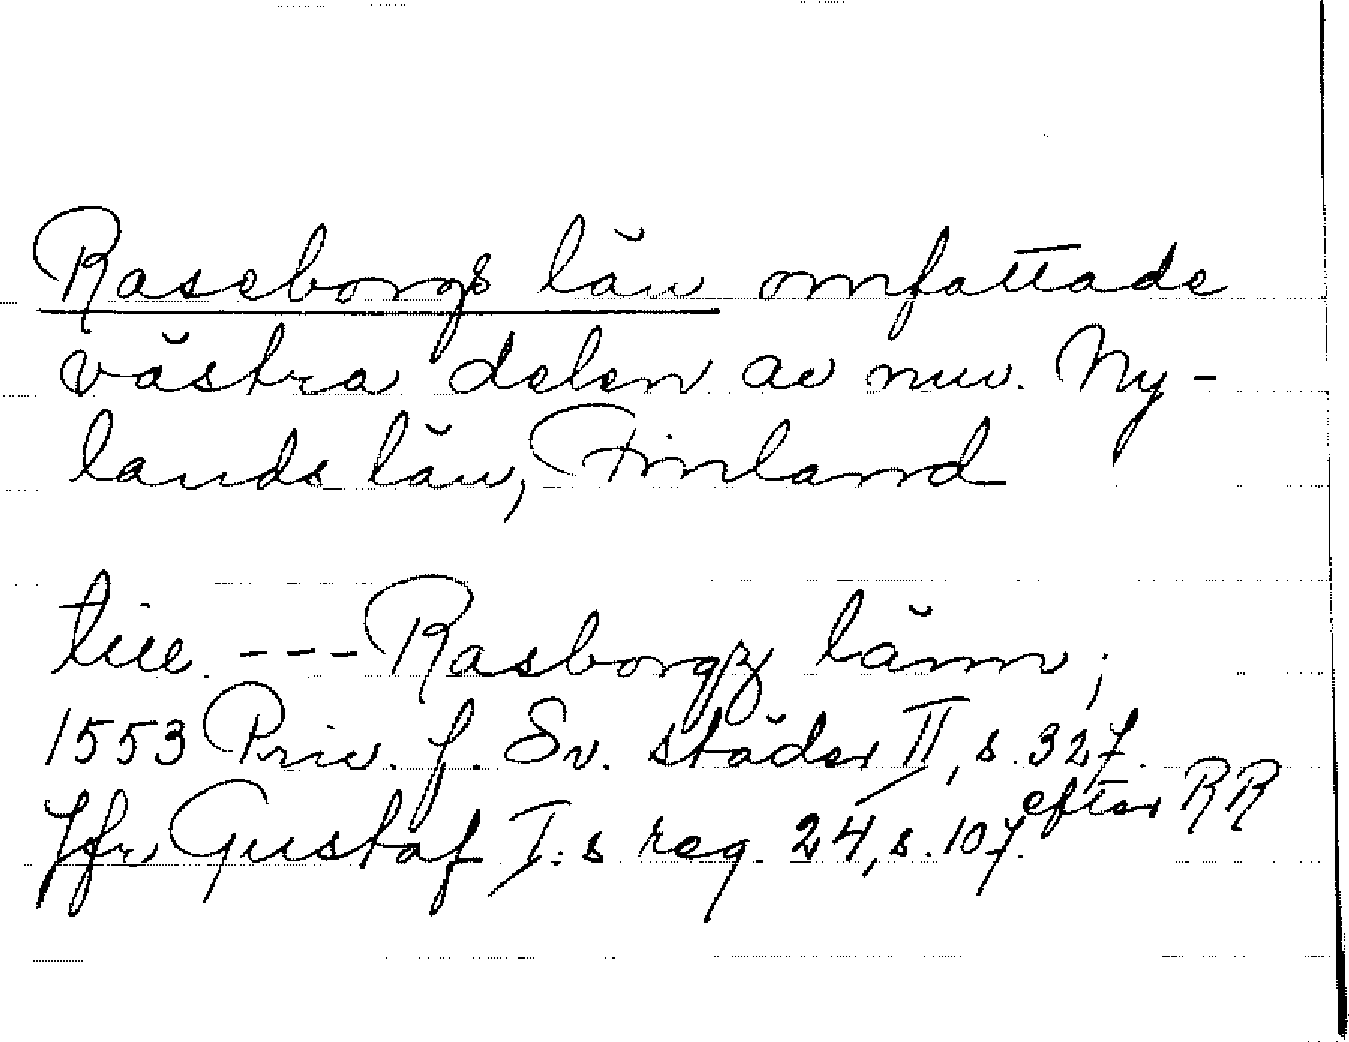 Raseborgs län omfattade
västra delen av nuv. Ny-
lands län, Finland
till --- Rasborgz länn;
1553 Priv. f. Sv. städer II, s. 327.
efter RR
Jfr Gustaf I:s reg. 24, s. 107.